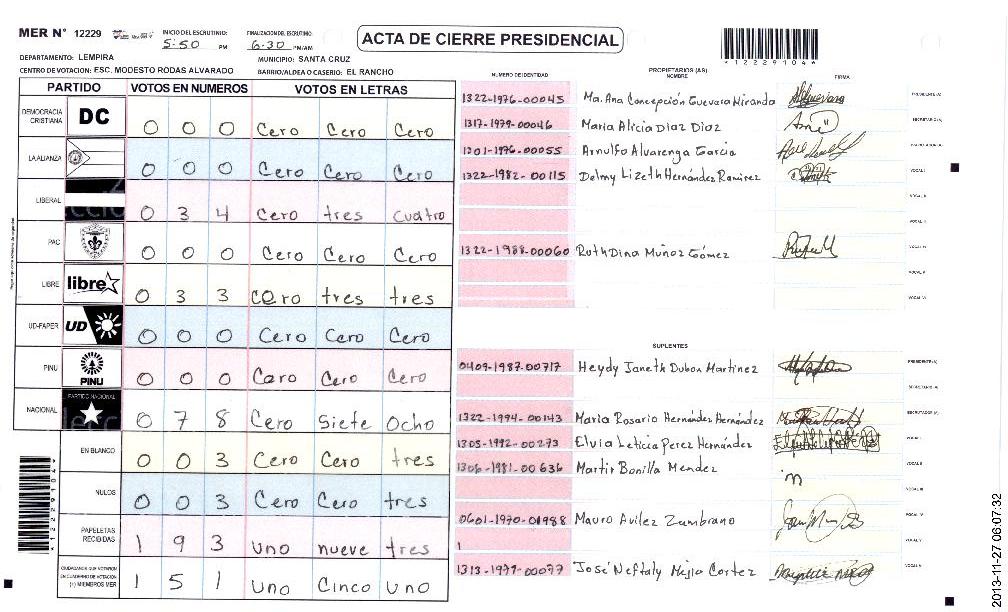 MER N° 12229 INICIO DEL ESCRUTINIO: 5:50 PM FINALIZACION DEL ESCRUTINIO: 6:30 PM/AM
ACTA DE CIERRE PRESIDENCIAL
*12229104*
DEPARTAMENTO: LEMPIRA MUNICIPIO: SANTA CRUZ
CENTRO DE VOTACION: ESC. MODESTO RODAS ALVARADO BARRIO/ALDEA O CASERIO: EL RANCHO
PARTIDO VOTOS EN NUMEROS VOTOS EN LETRAS
DEMOCRACIA CRISTIANA DC 0 0 0 Cero Cero Cero
LA ALIANZA 0 0 0 Cero Cero Cero
LIBERAL 0 3 4 Cero tres cuatro
PAC 0 0 0 Cero Cero Cero
LIBRE libre 0 3 3 Cero tres tres
UD-FAPER UD 0 0 0 Cero Cero Cero
PINU PINU 0 0 0 Cero Cero Cero
NACIONAL PARTIDO NACIONAL 0 7 8 Cero Siete Ocho
EN BLANCO 0 0 3 Cero Cero tres
NULOS 0 0 3 Cero Cero tres
PAPELETAS RECIBIDAS 1 9 3 uno nueve tres
CIUDADANOS QUE VOTARON EN CUADERNO DE VOTACION (+) MIEMBROS MER 1 5 1 Uno Cinco Uno
*12229104*
NUMERO DE IDENTIDAD PROPIETARIOS (AS) NOMBRE FIRMA
1322-1976-00045 Ma. Ana Concepción Guevara Miranda PRESIDENTE(A)
1317-1979-00046 Maria Alicia Diaz Diaz SECRETARIO(A)
1201-1976-00055 Arnulfo Alvarenga Garcia ESCRUTADOR(A)
1322-1982-00115 Delmy Lizeth Hernández Ramirez VOCAL I
VOCAL II
VOCAL III
1322-1988-00060 Ruth Dina Muñoz Gómez VOCAL IV
VOCAL V
VOCAL VI
SUPLENTES
0409-1987-00717 Heydy Janeth Dubon Martinez PRESIDENTE(A)
SECRETARIO(A)
1322-1994-00143 Maria Rosario Hernández Hernández ESCRUTADOR(A)
1305-1992-00273 Elvia Leticia Perez Hernández VOCAL I
1306-1981-00636 Martir Bonilla Mendez VOCAL II
VOCAL III
0601-1970-01988 Mauro Avilez Zambrano VOCAL IV
1 VOCAL V
1313-1977-00077 José Neftaly Mejia Cortez VOCAL VI
2013-11-27 06:07:32